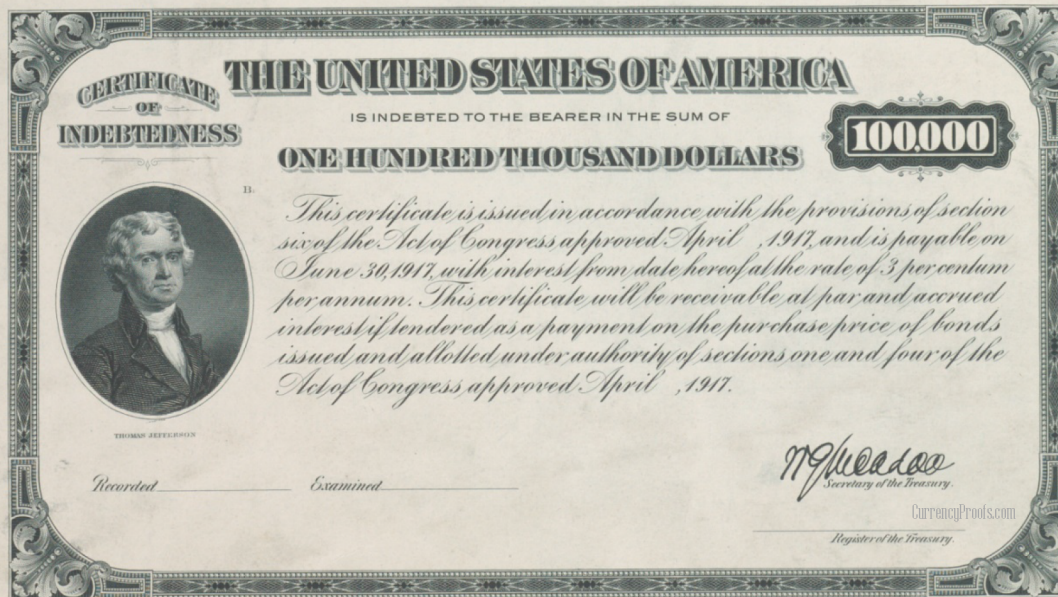 CERTIFICATE
OF
INDEBTEDNESS
THE UNITED STATES OF AMERICA
IS INDEBTED TO THE BEARER IN THE SUM OF
ONE HUNDRED THOUSAND DOLLARS
100,000
B.
This certificate is issued in accordance with the provisions of section
six of the Act of Congress approved April , 1917, and is payable on
June 30, 1917, with interest from date hereof at the rate of 3 per centum
per annum. This certificate will be receivable at par and accrued
interest if tendered as a payment on the purchase price of bonds
issued and allotted under authority of sections one and four of the
Act of Congress approved April , 1917.
THOMAS JEFFERSON
Recorded Examined
W G McAdoo
Secretary of the Treasury.
CurrencyProofs.com
Register of the Treasury.